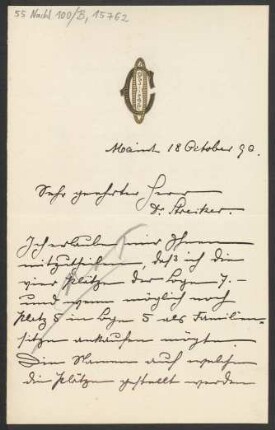 55 Nachl. 100/B, 15762
Mainz 18 October 90.
Sehr geehrter Herr
Dr. Strecker.
Ich erlaube mir Ihnen
mitzutheilen, daß ich die
vier Plätze der Loge 7.
und wenn möglich noch
Platz 5 in Loge 5 als Familien-
sitze ankaufen möchte.
Die Namen auf welchen
die Plätze gestellt werden